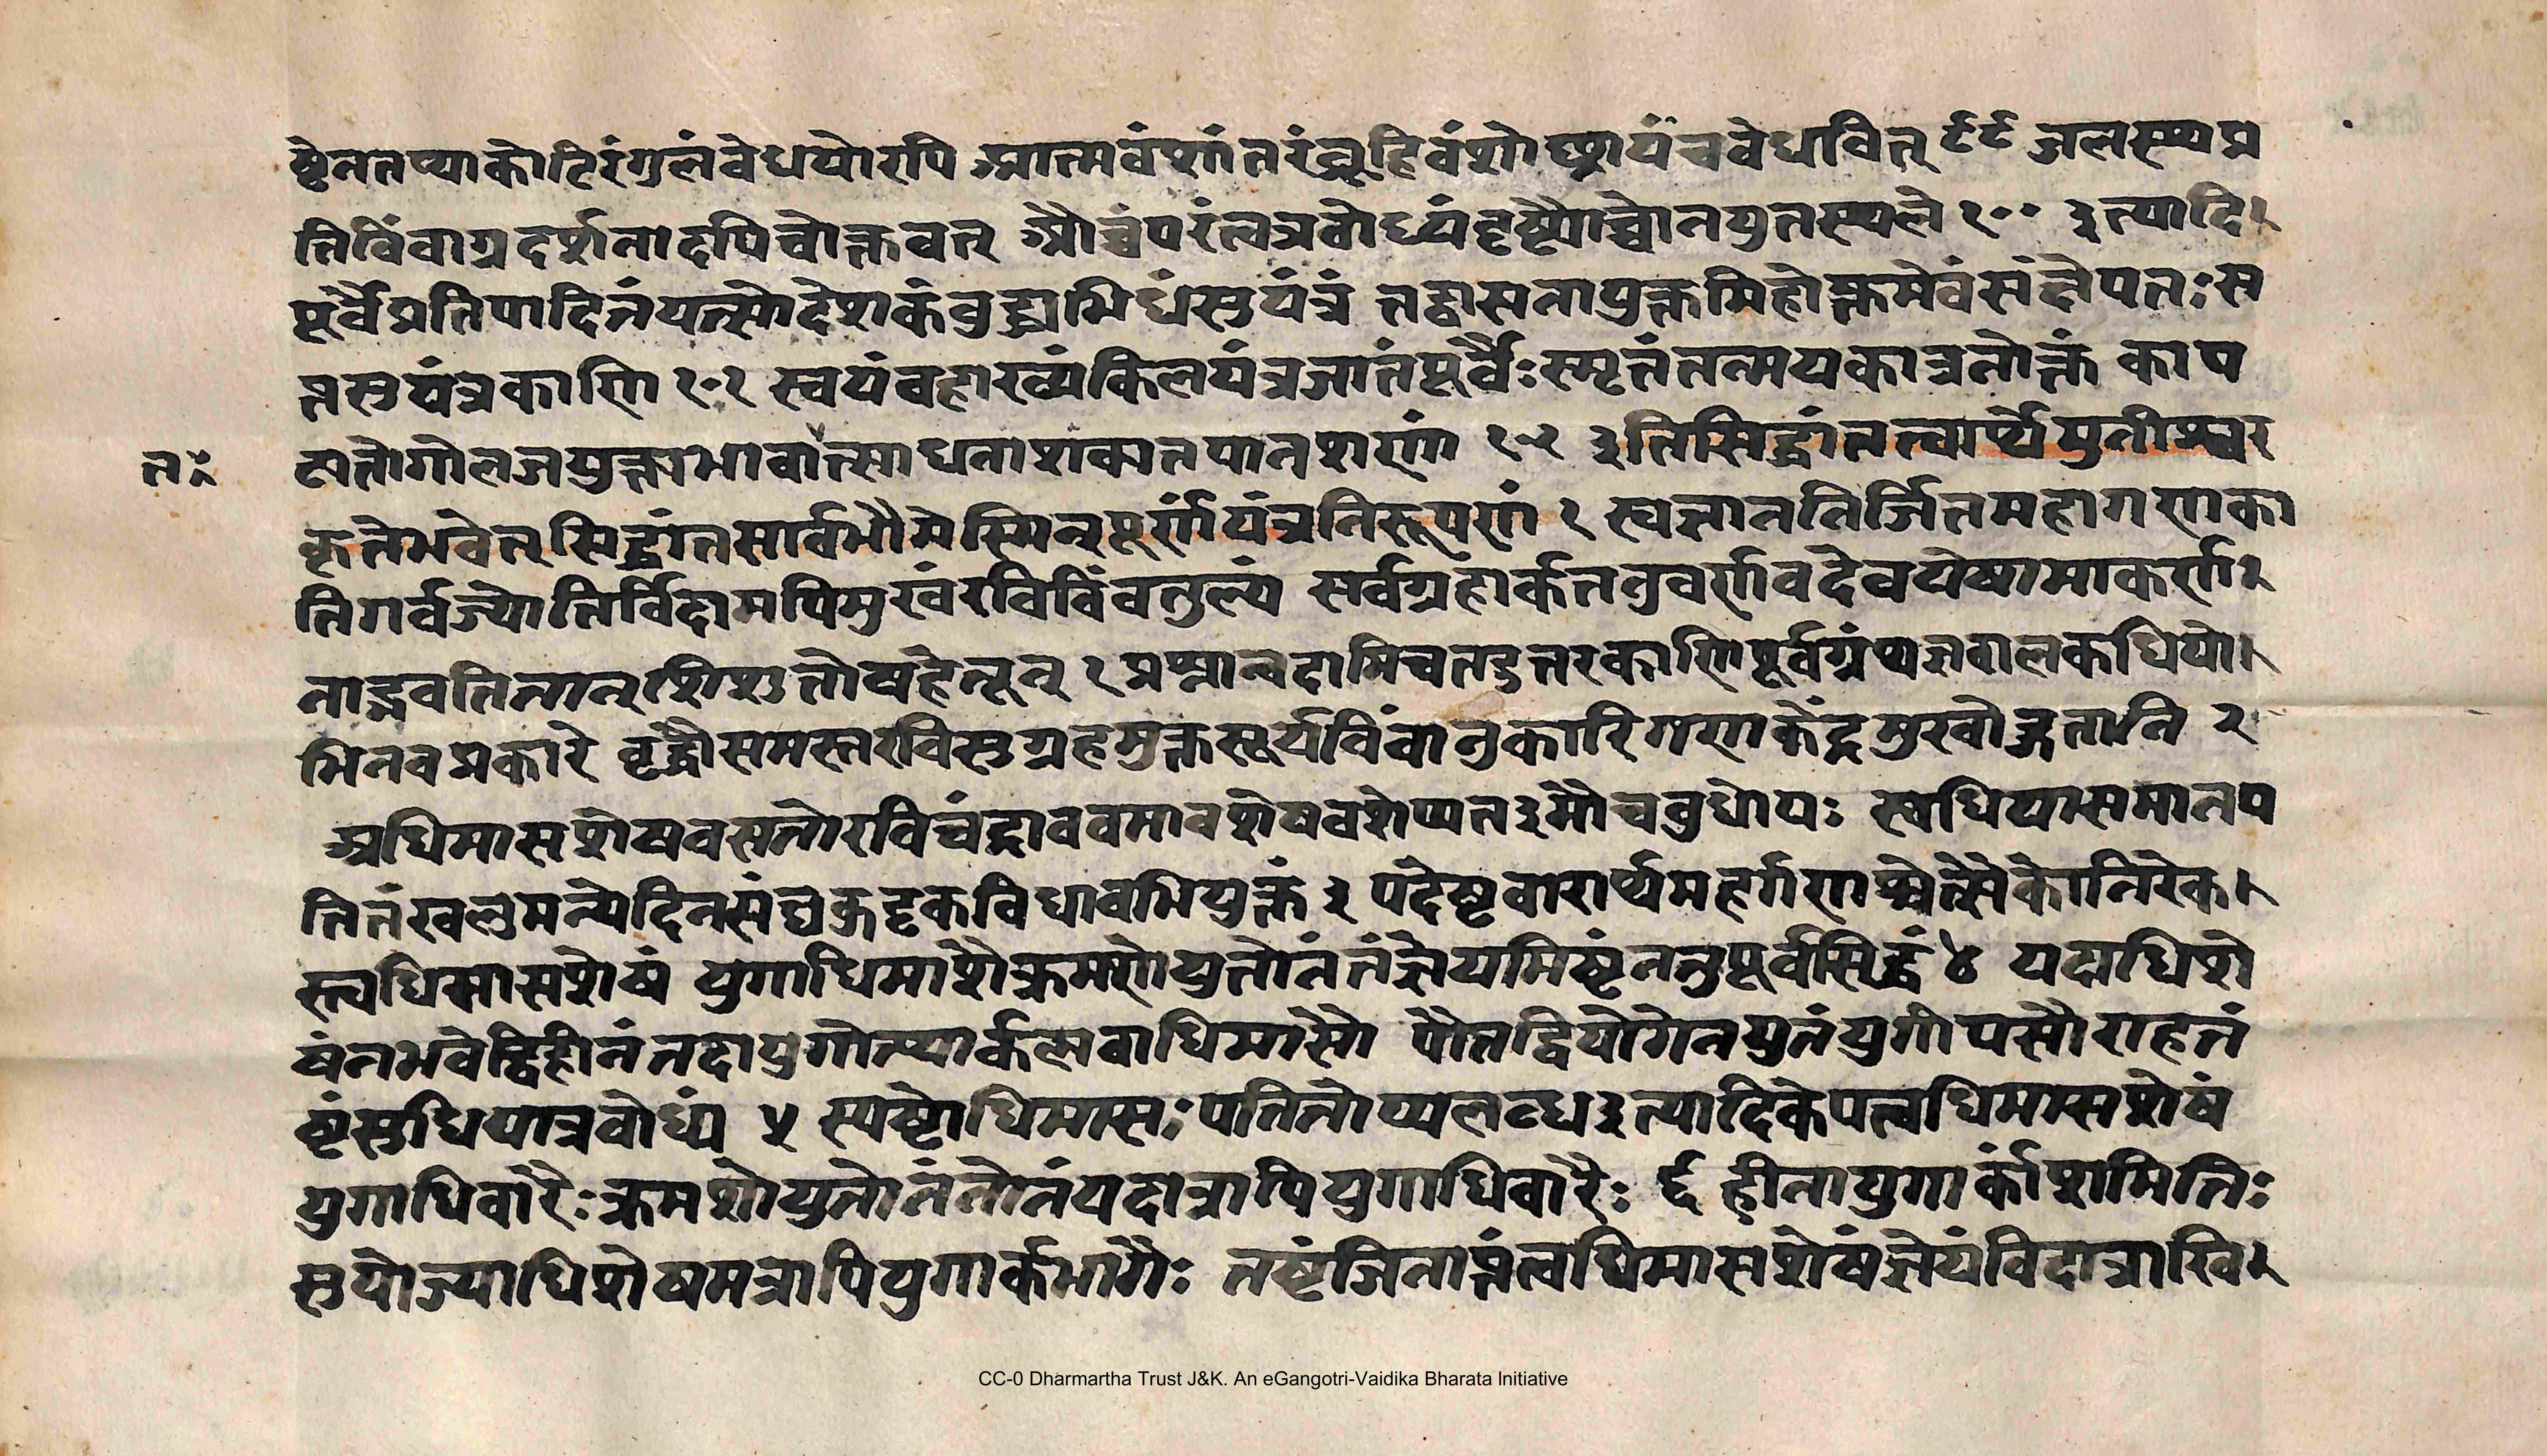 ष्टेनतप्याकोटिरंगुलंवेधयोरपि आत्मवंशांतरंब्रूहिवंशोछ्रायंचवेधवित् ९९ जलस्यप्र
तिविंवाग्रदर्शनादपिचोक्तवत् औच्चंपरंत्वत्रवोध्यंदृष्ट्यौच्चोनयुतस्थले १०० इत्यादि
पूर्वैःप्रतिपादितंयत्सोदेशकंवुद्ध्यभिधंसुयंत्रं तद्वासनायुक्तमिहोक्तमेवंसंक्षेपतः स
प्तसुयंत्रकाणि १०१ स्वयंवहाख्यंकिलयंत्रजातंपूर्वैःस्मृतंतन्मयकात्रनोक्तं काप
ट्यतोगोलजयुक्त्यभावात्साधनाशक्यतयातशरणं १०२ इतिसिद्धांततत्वार्थेमुनीश्वर
त
कृतेभवेत् सिद्धांतसार्वभौमेस्मिन्पूर्णंयंत्रनिरूपणं १ स्वज्ञाननिर्जितमहागणका
तिगर्वज्योतिर्विदामपिमुखंरविविंवतुल्यं सर्वग्रहार्कतनुवर्णवदेवयेषामाकर्ण
नाद्भवतितान् शिशुतोषहेतून् १ प्रश्नान्वदामिचतदुत्तरकाणिपूर्वग्रंथजवालकधियो
भिनवप्रकारे वृद्धौसमस्तरविसुग्रहमुक्तसूर्यविंवानुकारिगणकेंद्रमुखोद्गतानि २
अधिमासशेषवसतोरविचंद्राववमावशेषवशेप्यतइमौचवुधोयः स्वधियासमानय
तितंखलुमन्येदिनसंघकृदृकविधावभियुक्तं ३ यदेष्टवारार्थमहर्गणश्चेत्सैकोनिरेक
स्त्वधिमासशेषं युगाधिमाशैःक्रमशोयुतोनंतंज्ञेयमिष्टंननुपूर्वसिद्धं ४ यदाधिशे
षंनभवेद्विहीनंतदायुगोत्थार्कलवाधिमासौ यौतद्वियोगेनयुतंयुगीयसौराहतं
ष्टंसुधियात्रवोध्यं ५ स्पष्टोधिमासः पतितोप्यलब्धइत्यादिकेयत्वधिमासशेषं
युगाधिवारैः क्रमशोयुतोनंतोनंयदात्रापियुगाधिवारैः ६ हीनायुगार्कांशमितिः
सुयोज्याधिशेषमत्रापियुगार्कभागैः तष्टंजिनाप्तंत्वधिमासशेषंज्ञेयंविदात्राखि
CC-0 Dharmartha Trust J&K. An eGangotri-Vaidika Bharata Initiative